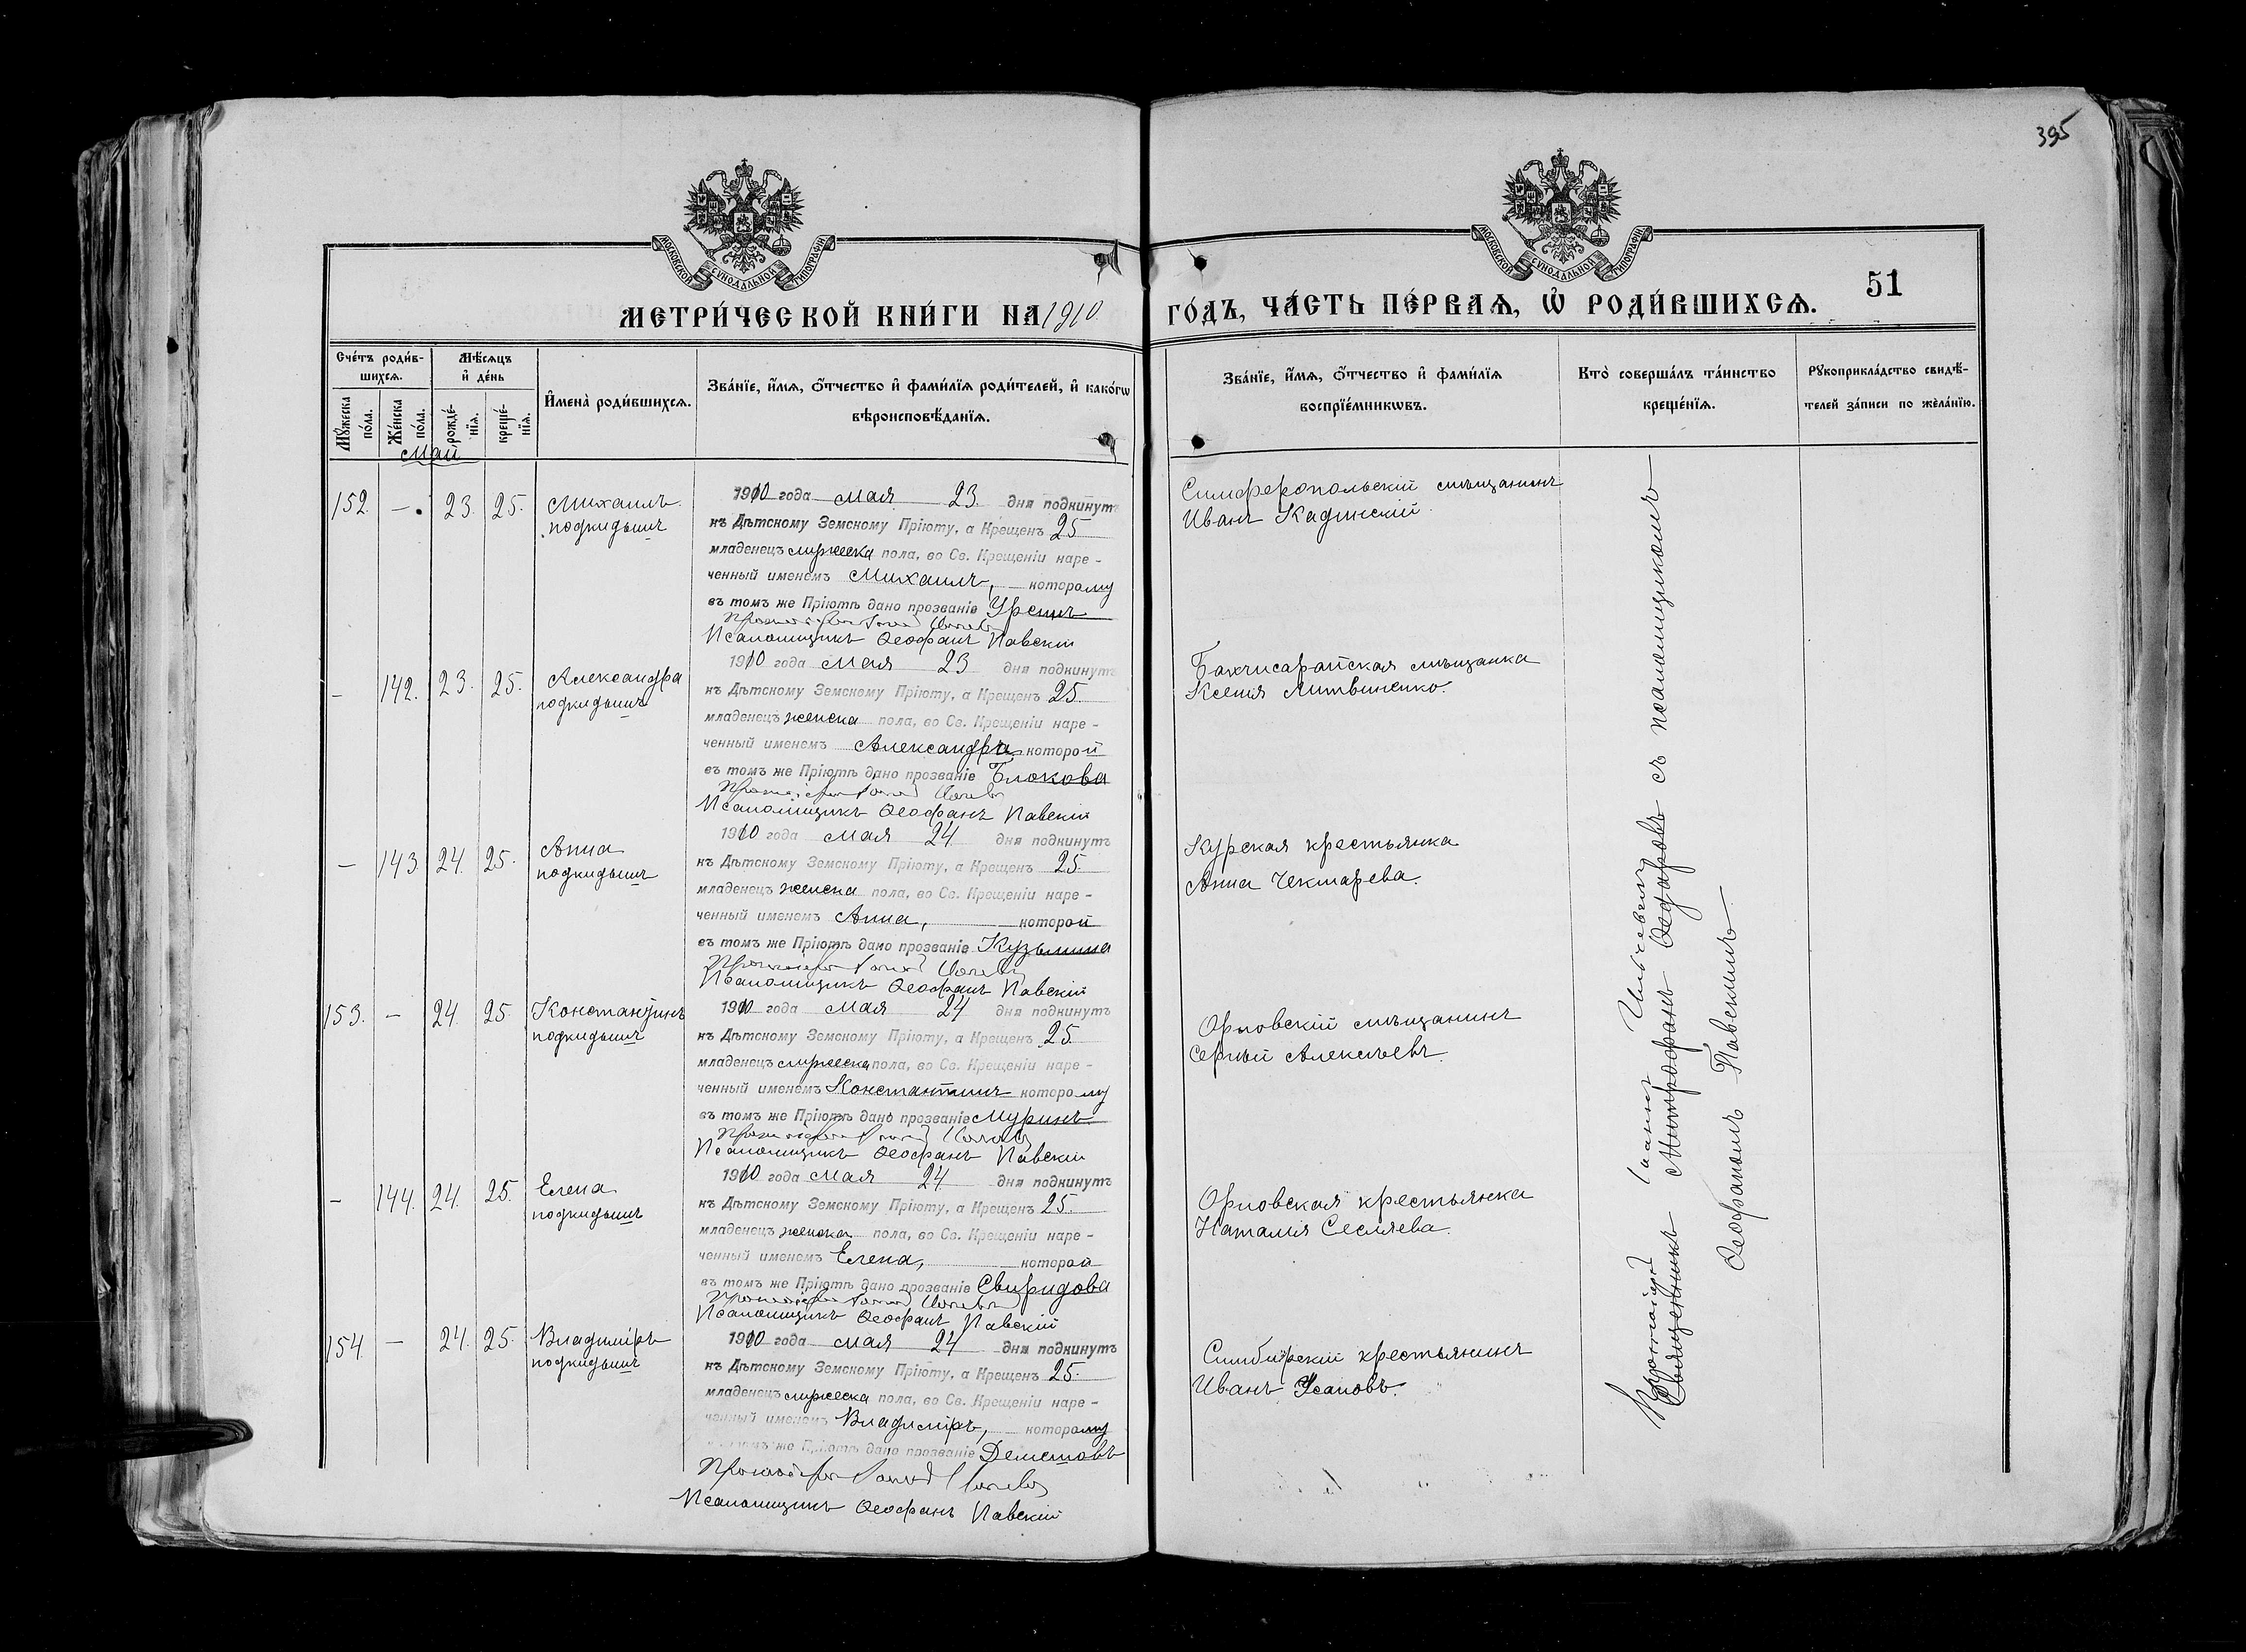 395
МОСКОВСКОЙ СѴНОДАЛЬНОЙ ТИПОГРАФІИ
МОСКОВСКОЙ СѴНОДАЛЬНОЙ ТИПОГРАФІИ
51
МЕТРИ́ЧЕСКОЙ КНИ́ГИ НА 1910
ГО́ДЪ, ЧА́СТЬ ПЕ́РВАѦ, Ѡ҆ РОДИ́ВШИХСѦ.
Сче́тъ роди́в-
шихсѧ.
Мѣ́сѧцъ
и҆ де́нь
Мꙋ́жеска
по́ла.
Же́нска
по́ла.
рожде́-
нїѧ.
креще́-
нїѧ.
И҆мена̀ роди́вшихсѧ.
Зва́нїе, и҆́мѧ, ѻ҆́тчество и҆ фами́лїѧ роди́телей, и҆ како́гѡ
вѣроисповѣ́данїѧ.
Зва́нїе, и҆́мѧ, ѻ҆́тчество и҆ фами́лїѧ
воспрїе́мникѡвъ.
Кто̀ соверша́лъ та́инство
креще́нїѧ.
Рꙋкоприкла́дство свидѣ́-
телей за́писи по жела́нїю.
Май
152. — 23. 25. Михаилъ
подкидышъ
1910 года мая 23 дня подкинутъ
къ Дѣтскому Земскому Пріюту, а Крещенъ 25
младенецъ мужеска пола, во Св. Крещеніи наре-
ченный именемъ Михаилъ, которому
въ томъ же Пріютѣ дано прозваніе
Псаломщикъ Ѳеофанъ Павскій
Симферопольскій мѣщанинъ
Иванъ Кадинскій.
— 142. 23. 25. Александра
подкидышъ
1910 года мая 23 дня подкинутъ
къ Дѣтскому Земскому Пріюту, а Крещенъ 25.
младенецъ женска пола, во Св. Крещеніи наре-
ченный именемъ Александра которой
въ томъ же Пріютѣ дано прозваніе Блокова
Псаломщикъ Ѳеофанъ Павскій
Бахчисарайская мѣщанка
Ксенія Литвиненко.
— 143. 24. 25. Анна
подкидышъ
1910 года мая 24 дня подкинутъ
къ Дѣтскому Земскому Пріюту, а Крещенъ 25.
младенецъ женска пола, во Св. Крещеніи наре-
ченный именемъ Анна, которой
въ томъ же Пріютѣ дано прозваніе Кузьмина
Псаломщикъ Ѳеофанъ Павскій
Курская крестьянка
Анна Чекмарева.
153. — 24. 25. Константинъ
подкидышъ
1910 года мая 24 дня подкинутъ
къ Дѣтскому Земскому Пріюту, а Крещенъ 25.
младенецъ мужеска пола, во Св. Крещеніи наре-
ченный именемъ Константинъ которому
въ томъ же Пріютѣ дано прозваніе Муринъ.
Псаломщикъ Ѳеофанъ Павскій
Орловскій мѣщанинъ
Сергѣй Алексѣевъ.
— 144. 24. 25. Елена
подкидышъ
1910 года мая 24 дня подкинутъ
къ Дѣтскому Земскому Пріюту, а Крещенъ 25.
младенецъ женска пола, во Св. Крещеніи наре-
ченный именемъ Елена, которой
въ томъ же Пріютѣ дано прозваніе Свиридова
Псаломщикъ Ѳеофанъ Павскій
Орловская крестьянка
Наталія
154. — 24. 25. Владиміръ
подкидышъ
1910 года мая 24 дня подкинутъ
къ Дѣтскому Земскому Пріюту, а Крещенъ 25.
младенецъ мужеска пола, во Св. Крещеніи наре-
ченный именемъ Владиміръ, которому
въ томъ же Пріютѣ дано прозваніе
Псаломщикъ Ѳеофанъ Павскій
Симбирскій крестьянинъ
Иванъ
Протоіерей Іоаннъ
Священникъ Митрофанъ Ѳедоровъ съ псаломщикомъ
Ѳеофаномъ Павскимъ